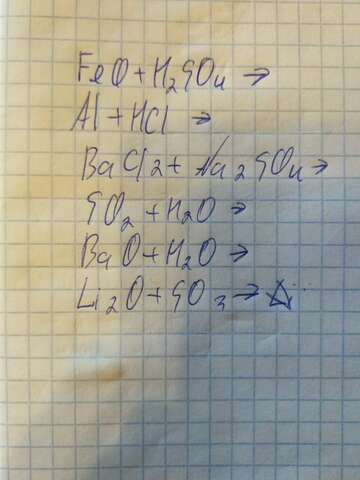 FeO + H₂SO₄ →
Al + HCl →
BaCl₂ + Na₂SO₄ →
SO₂ + H₂O →
BaO + H₂O →
Li₂O + SO₃ →